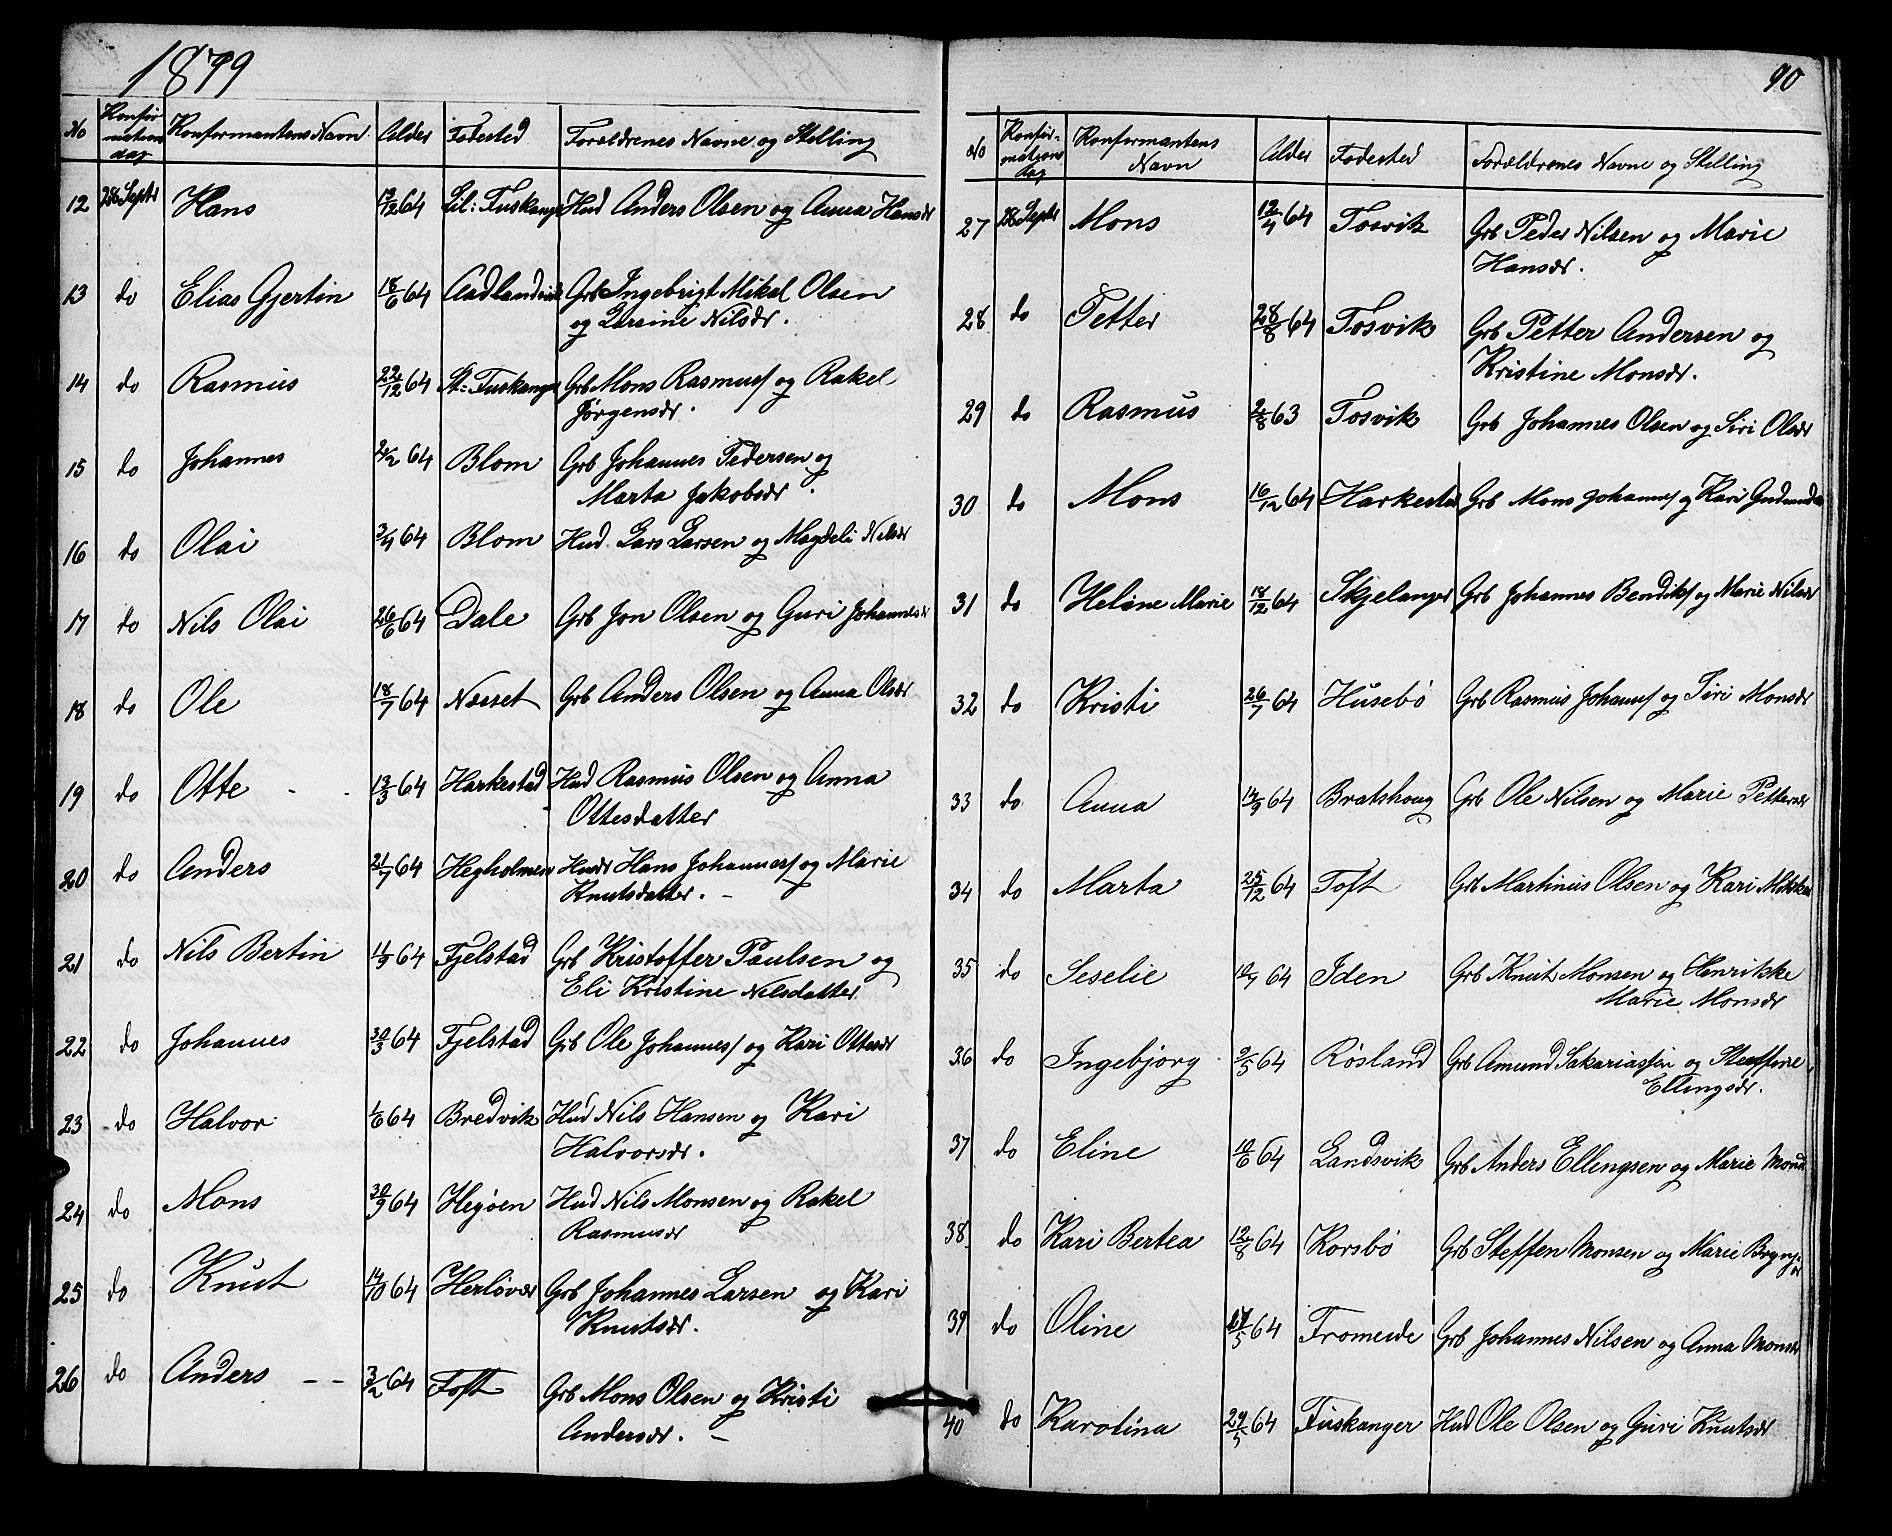 1879
No Konfirmations dag Konfirmantens Navn Alder Fødested Forældrenes Navne og Stilling
12 28 Septbr Hans 64 Lil: Fuskanger Hud Anders Olsen og Anna Hansdr
13 do Elias Gjertin 18/6 64 Aadlandsvik Grb Ingebrigt Mikal Olsen
og Larsine Nilsdr.
14 do Rasmus 22/12 64 St: Fuskanger Grb Mons Rasmus/ og Rakel
Jørgensdr.
15 do Johannes 64 Blom Grb Johannes Pedersen og
Marta Jakobsdr.
16 do Olai 3/4 64 Blom Hud Lars Larsen og Magdeli Nilsdr
17 do Nils Olai 26/6 64 Dale Grb Jon Olsen og Guri Johannesdr
18 do Ole 18/7 64 Næsset Grb Anders Olsen og Anna Olsdr
19 do Otte - - 13/3 64 Harkestad Hud Rasmus Olsen og Anna
Ottesdatter
20 do Anders 21/7 64 Hegholmen Husdr Hans Johannes/ og Marie
Knutsdatter. -
21 do Nils Bertin 11/9 64 Fjelstad Grb Kristoffer Paulsen og
Eli Kristine Nilsdatter
22 do Johannes 30/3 64 Fjelstad Grb Ole Johannes/ og Kari Ottesdr
23 do Halvor 1/6 64 Bredvik Hud Nils Hansen og Kari
Halvorsdr.
24 do Mons 30/9 64 Hegøen Hud Nils Monsen og Rakel
Rasmusdr
25 do Knut 14/10 64 Herløvær Grb Johannes Larsen og Kari
Knutsdr.
26 do Anders - - 3/2 64 Toft Grb Mons Olsen og Kristi
Andersdr. -
90
No Konfirmations dag Konfirmantens Navn Alder Fodested Forældrenes Navne og Stilling
27 28 Septbr Mons 12/4 64 Tosvik Grb Peder Nilsen og Marie
Hansdr.
28 do Petter 28/8 64 Tosvik Grb Petter Andersen og
Kristine Monsdr.
29 do Rasmus 2/8 63 Tosvik Grb Johannes Olsen og Siri Olsdr
30 do Mons 16/12 64 Harkestad Grb Mons Johannes/ og Kari
31 do Heline Marie 18/12 64 Skjelanger Grb Johannes Bendiks/ og Marie Nilsdr
32 do Kristi 26/7 64 Husebø Grb Rasmus Johannes/ og Siri Monsdr
33 do Anna 14/9 64 Bratshoug Grb Ole Nilsen og Marie Pettersdr
34 do Marta 25/12 64 Toft Grb Martinus Olsen og Kari
35 do Seselie 64 Iden Grb Knut Monsen og Henrikke
Marie Monsdr
36 do Ingebjorg 9/5 64 Røsland Grb Amund Sakariassen og Steffine
Ellingsdr.
37 do Eline 10/6 64 Landsvik Grb Anders Ellingsen og Marie Monsd
38 do Kari Bertea 12/8 64 Korsbø Grb Steffen Monsen og Marie
39 do Oline 17/5 64 Fromeide Grb Johannes Nilsen og Anna Monsdr
40 do Karolina 29/5 64 Fuskanger Hud Ole Olsen og Guri Knutsdr